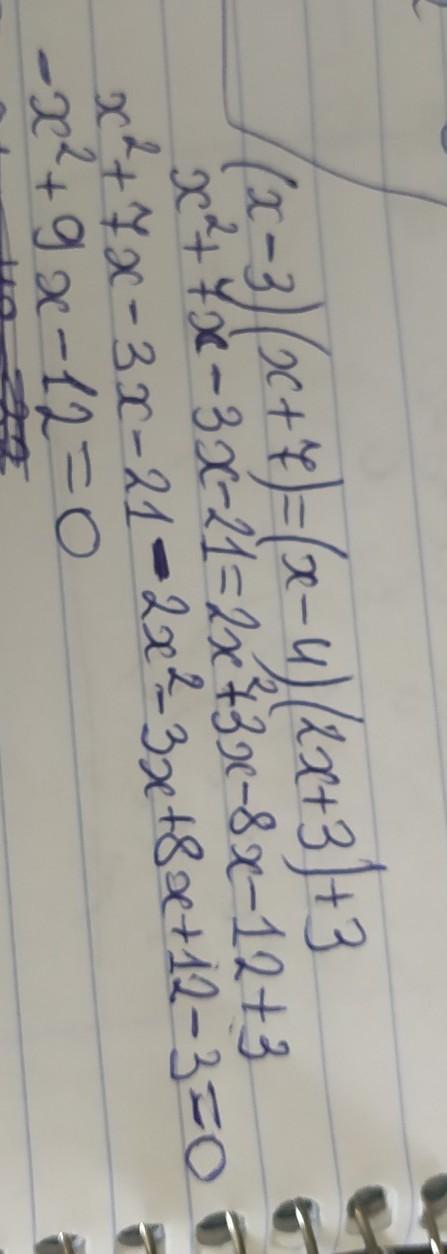 (x-3)(x+7)=(x-4)(2x+3)+3
x²+7x-3x-21=2x²+3x-8x-12+3
x²+7x-3x-21-2x²-3x+8x+12-3=0
-x²+9x-12=0